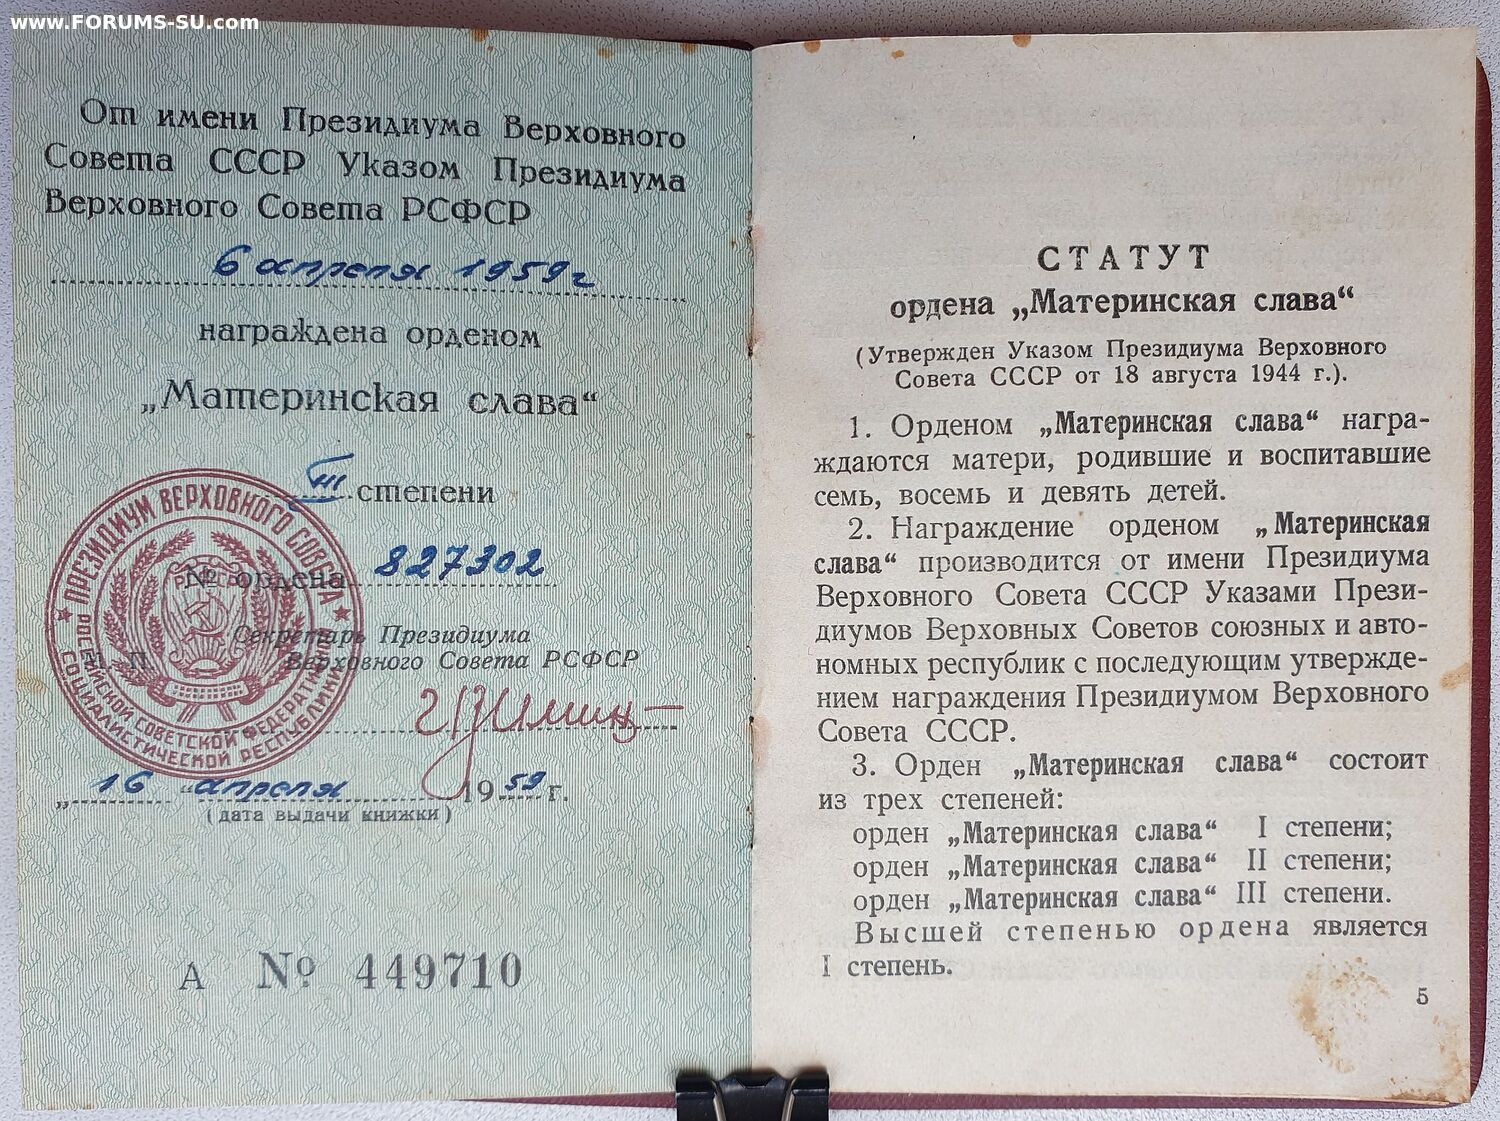 www.FORUMS-SU.com
От имени Президиума Верховного
Совета СССР Указом Президиума
Верховного Совета РСФСР
6 апреля 1959 г
награждена орденом
„Материнская слава“
III степени
№ ордена 827302
Секретарь Президиума
М. П. Верховного Совета РСФСР
„16“ апреля 1959 г.
(дата выдачи книжки)
А № 449710
★ ПРЕЗИДИУМ ВЕРХОВНОГО СОВЕТА ★
РОССИЙСКОЙ СОВЕТСКОЙ ФЕДЕРАТИВНОЙ
СОЦИАЛИСТИЧЕСКОЙ РЕСПУБЛИКИ
РСФСР
СТАТУТ
ордена „Материнская слава“
(Утвержден Указом Президиума Верховного
Совета СССР от 18 августа 1944 г.).
1. Орденом „Материнская слава“ награ-
ждаются матери, родившие и воспитавшие
семь, восемь и девять детей.
2. Награждение орденом „Материнская
слава“ производится от имени Президиума
Верховного Совета СССР Указами Прези-
диумов Верховных Советов союзных и авто-
номных республик с последующим утвержде-
нием награждения Президиумом Верховного
Совета СССР.
3. Орден „Материнская слава“ состоит
из трех степеней:
орден „Материнская слава“ I степени;
орден „Материнская слава“ II степени;
орден „Материнская слава“ III степени.
Высшей степенью ордена является
I степень.
5